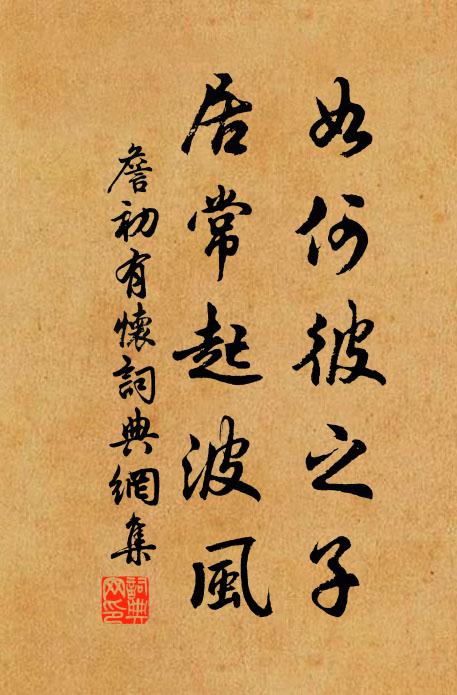 如何彼之子
居常起波風
詹初有懷詞典網集
詞典
网印